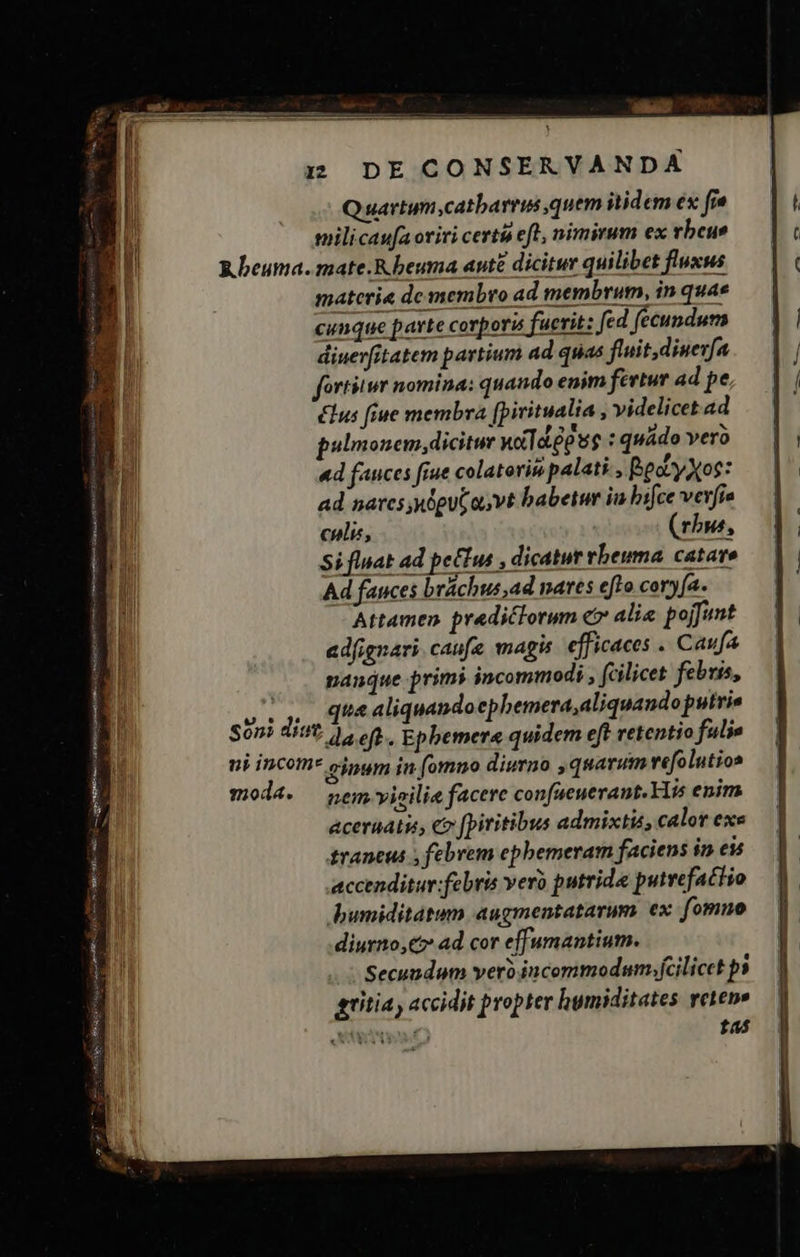 12 DE CONSERVANDA
Quartum,catharrus,quem itidem ex ſi⸗
mili cauſa oriri certũ eſt, nimirum ex rheu⸗
Rheuma. mate. Rheuma autẽ dicitur quilibet fluxus
materiæ de membro ad membrum, in quas
cunque parte corporis fuerit: ſed ſecundum
diuerſitatem partium ad quas fluit,diuerſa
ſortitur nomina: quando enim fertur ad pe,
ctus ſiue membra ſpiritualia, videlicet ad
pulmonem,dicitur κατάῤῥους : quãdo verò
ad fauces ſiue colatoriũ palati, βράγχος:
ad nares,κόρυζα,vt habetur in hiſce verſi⸗
culis, (rhus,
Si fluat ad pectus, dicatur rheuma catar⸗
Ad fauces brãchus,ad nares eſto coryſa.
Attamen prædictorum & aliæ poſſunt
adſignari cauſæ magis efficaces. Cauſa
nanque primi incommodi, ſcilicet febris,
quæ aliquando ephemera,aliquando putri⸗
Sõni diur da eſt. Ephemeræ quidem eſt retentio fuli⸗
ni incom⸗ ginum in ſomno diurno, quarum reſolutio⸗
moda. nem vigiliæ facere conſueuerant. His enim
aceruatis, & ſpiritibus admixtis, calor ex⸗
traneus, febrem ephemeram faciens in eis
accenditur:febris verò putridæ putrefactio
humiditatum augmentatarum ex ſomno
diurno,& ad cor effumantium.
Secundum verò incommodum,ſcilicet pi
gritia, accidit propter humiditates reten⸗
tas